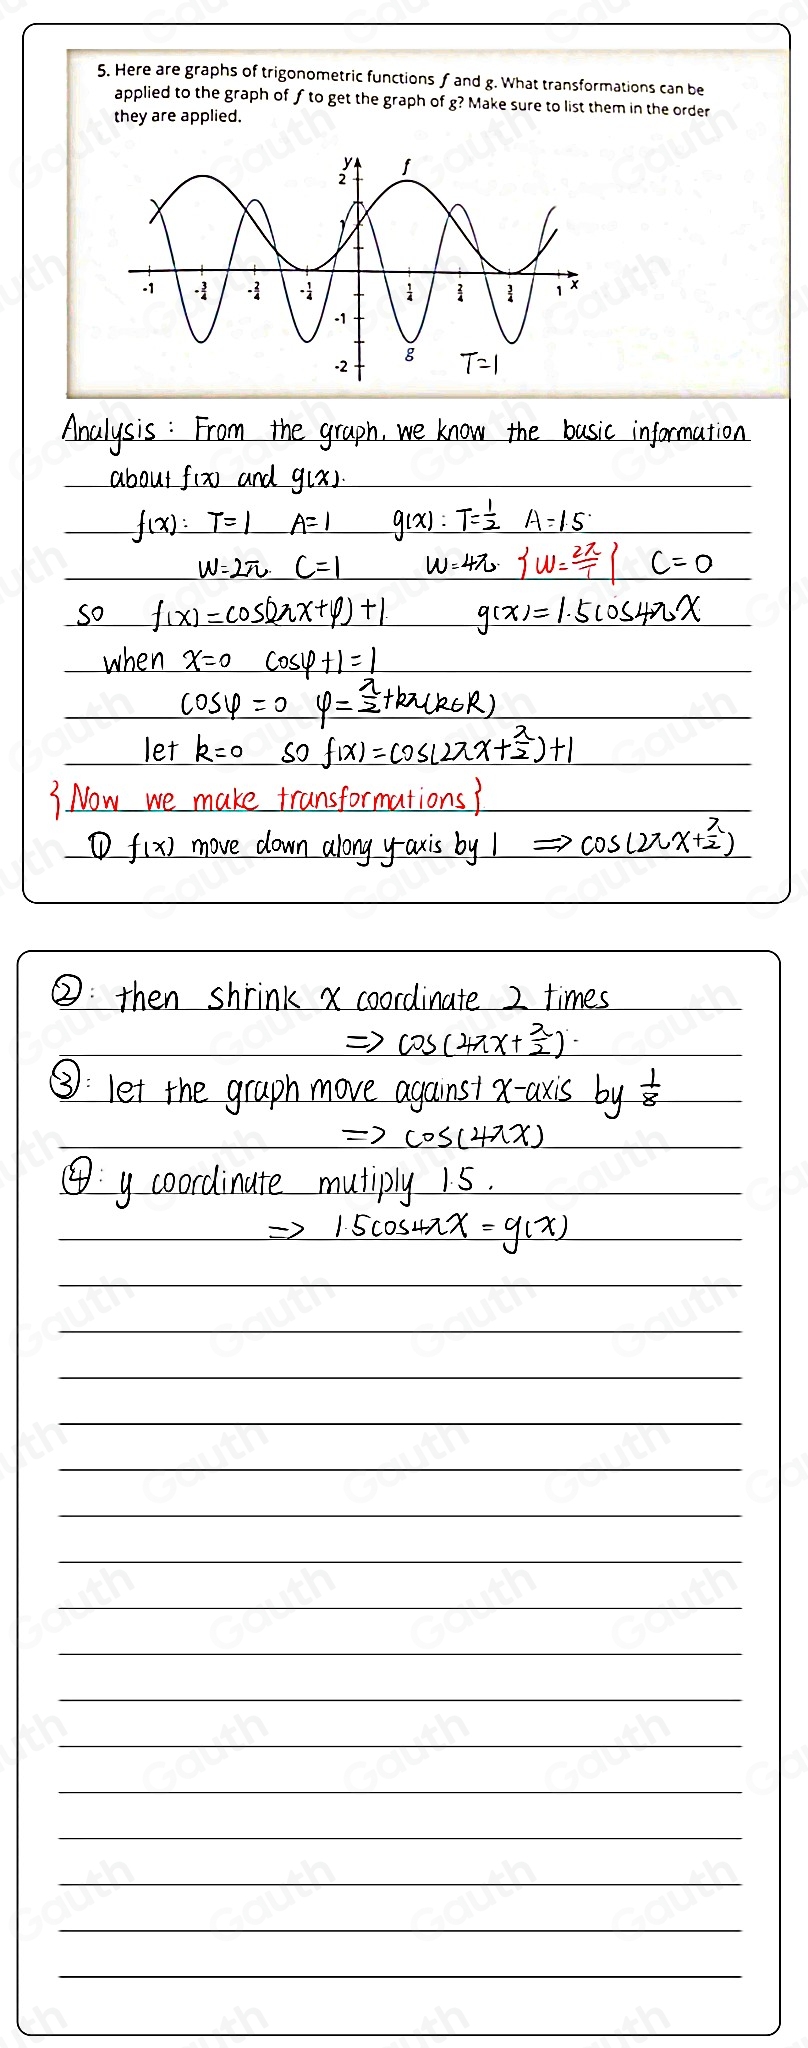 5. Here are graphs of trigonometric functions f and g. What transformations can be
applied to the graph of f to get the graph of g? Make sure to list them in the order
they are applied.
y
2
f
1
-1
-3/4
-2/4
-1/4
1/4
2/4
3/4
1
x
-1
-2
g
T=1
Analysis: From the graph, we know the basic information
about f(x) and g(x).
f(x): T=1 A=1 g(x): T=1/2 A=1.5
W=2π C=1 W=4π {W=2π/T} C=0
so f(x)=cos(2πx+φ)+1 g(x)=1.5cos4πx
when x=0 cosφ+1=1
cosφ=0 φ=π/2+kπ(k∈R)
let k=0 so f(x)=cos(2πx+π/2)+1
{Now we make transformations}
① f(x) move down along y-axis by 1 ⇒ cos(2πx+π/2)
②: then shrink x coordinate 2 times
⇒ cos(4πx+π/2).
③: let the graph move against x-axis by 1/8
⇒ cos(4πx)
④: y coordinate mutiply 1.5.
⇒ 1.5cos4πx=g(x)